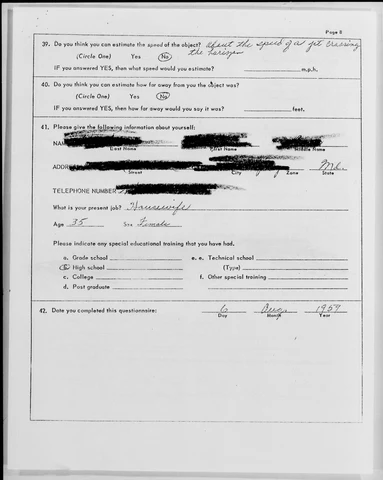 Page 8
39. Do you think you can estimate the speed of the object? about the speed of a jet crossing
the horizon
(Circle One) Yes No
IF you answered YES, then what speed would you estimate? m.p.h.
40. Do you think you can estimate how far away from you the object was?
(Circle One) Yes No
IF you answered YES, then how far away would you say it was? feet.
41. Please give the following information about yourself:
NAM
Last Name First Name Middle Name
ADDRE
Street City Zone State
TELEPHONE NUMBER
What is your present job? Housewife
Age 35 Sex Female
Please indicate any special educational training that you have had.
a. Grade school e. Technical school
b. High school (Type)
c. College f. Other special training
d. Post graduate
42. Date you completed this questionnaire: 6 Aug. 1957
Day Month Year